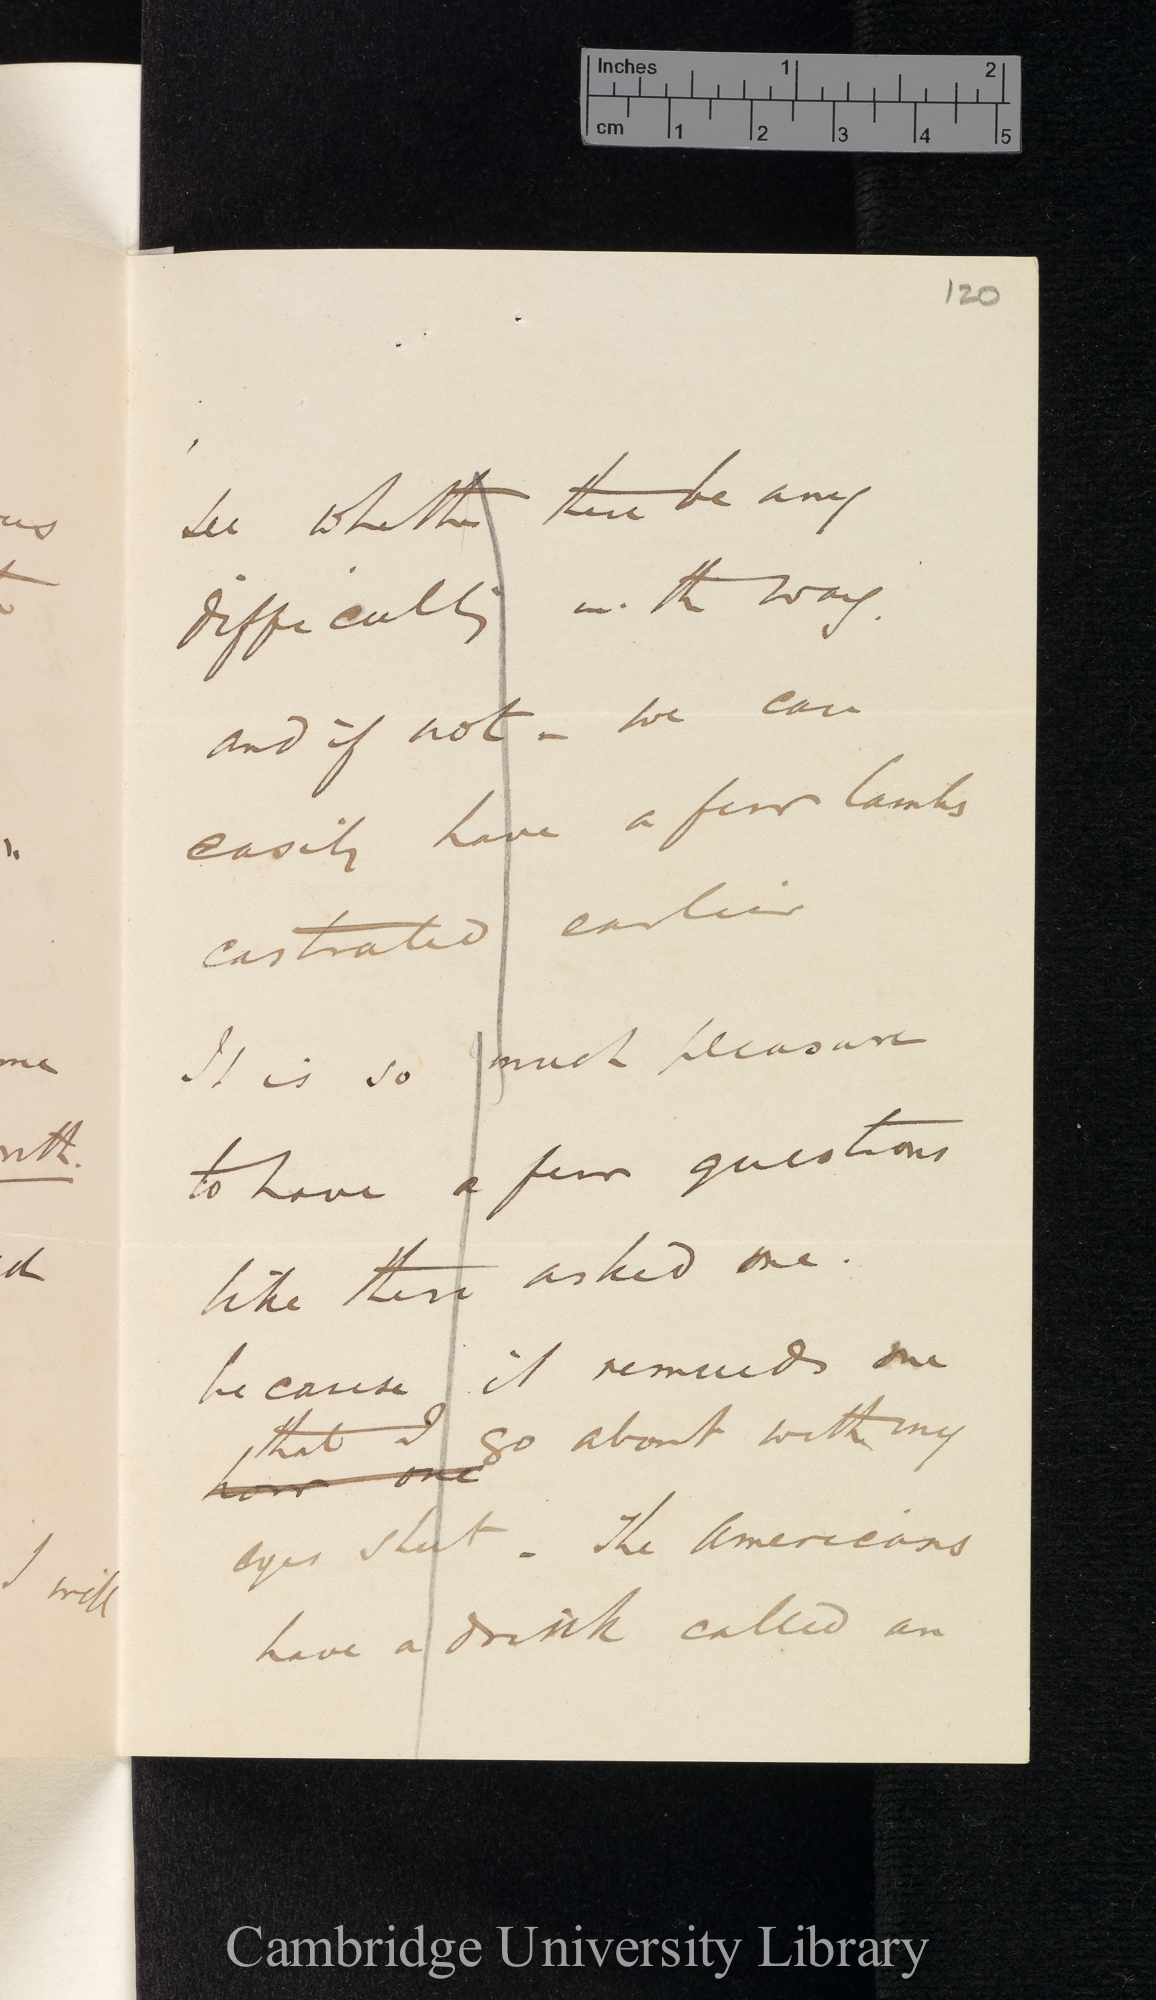 Inches 1 2
cm 1 2 3 4 5
120
see whether there be any
difficulty in the way.
and if not - we can
easily have a few lambs
castrated earlier
It is so much pleasure
to have a few questions
like these asked me.
because it reminds me
that I go about with my
how one
eyes shut - The Americans
have a drink called an
me
I will
Cambridge University Library